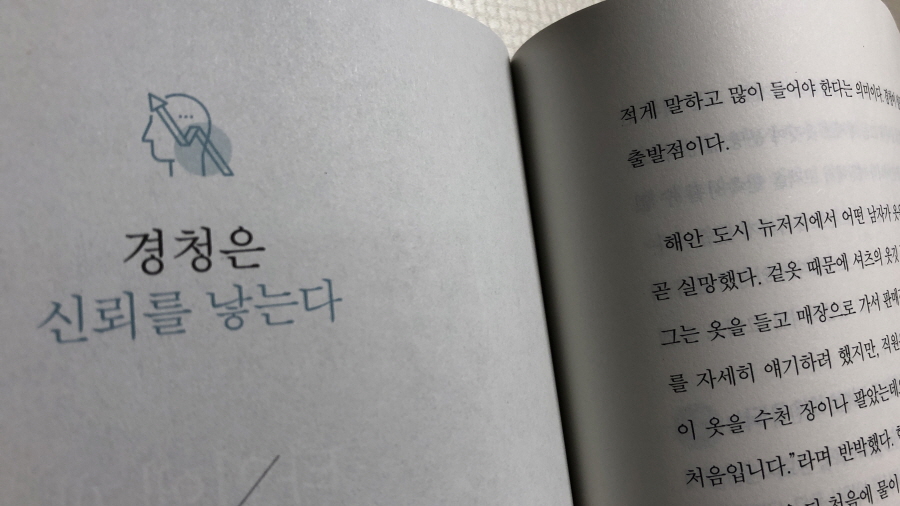 경청은
신뢰를 낳는다
적게 말하고 많이 들어야 한다는 의미이다.
출발점이다.
해안 도시 뉴저지에서 어떤 남자가
곧 실망했다. 겉옷 때문에 셔츠의 옷깃
그는 옷을 들고 매장으로 가서
를 자세히 얘기하려 했지만,
이 옷을 수천 장이나 팔았는데
처음입니다.”라며 반박했다.
처음에